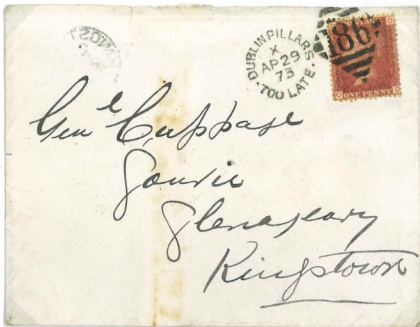 DUBLIN PILLARS
X
AP 29
73
TOO LATE
186
ONE PENNY
Gen^l Cuppage
Gowrie
Glenageary
Kingstown